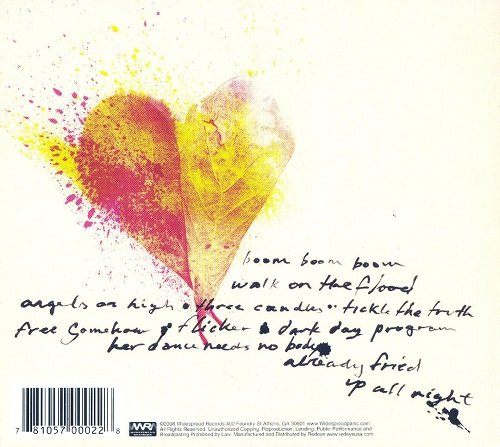 boom boom boom
walk on the flood
angels on high • three candles • tickle the truth
free somehow • flicker • dark day program
her dance needs no body
already fried
up all night
7 81057 00022 8
©2008 Widespread Records 400 Foundry St Athens, GA 30601 www.Widespreadpanic.com
All Rights Reserved. Unauthorized Copying, Reproduction, Lending, Public Performance and
Broadcasting Prohibited by Law. Manufactured and Distributed by Redeye www.redeyeusa.com